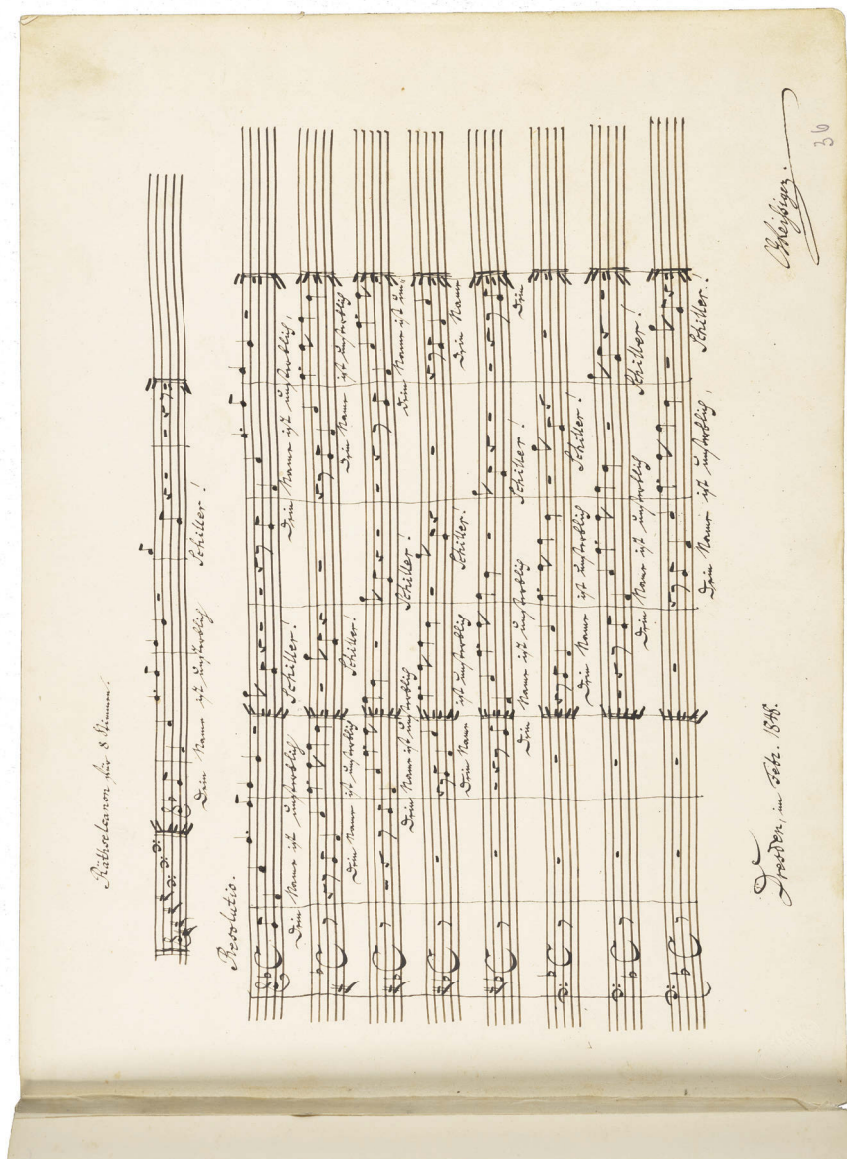 Räthselcanon für 8 Stimmen.
Dein Name ist unsterblich Schiller!
Resolutio.
Dein Name ist unsterblich Schiller! Dein Name ist unsterblich,
Dein Name ist unsterblich Schiller! Dein Name ist unsterblich
Dein Name ist unsterblich Schiller! Dein Name ist un-
Dein Name ist unsterblich Schiller! Dein Name
Dein Name ist unsterblich Schiller! Dein
Dein Name ist unsterblich Schiller!
Dein Name ist unsterblich Schiller!
Dein Name ist unsterblich, Schiller!
Dresden, im Febr. 1848.
CGReißiger.
36